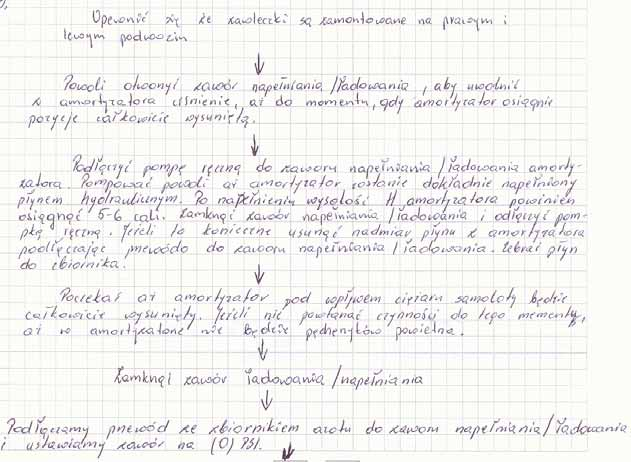 Upewnić się że zawleczki są zamontowane na prawym i
lewym podwoziu
↓
Powoli otworzyć zawór napełniania/ładowania, aby uwolnić
z amortyzatora ciśnienie, aż do momentu, gdy amortyzator osiągnie
pozycje całkowicie wysuniętą.
↓
Podłączyć pompę ręczną do zaworu napełniania/ładowania amorty-
zatora. Pompować powoli aż amortyzator zostanie dokładnie napełniony
płynem hydraulicznym. Po napełnieniu wysokość H amortyzatora powinien
osiągnąć 5-6 cali. Zamknąć zawór napełniania/ładowania i odłączyć pom-
pkę ręczną. Jeżeli to konieczne usunąć nadmiar płynu z amortyzatora
podłączając przewódo do zaworu napełniania/ładowania. Zebrać płyn
do zbiornika.
↓
Poczekać aż amortyzator pod wpływem ciężaru samolotu będzie
całkowicie wysunięty. Jeżeli nie powtarzać czynności do tego momentu,
aż w amortyzatorze nie będzie pęcherzyków powietrza.
↓
Zamknąć zawór ładowania/napełniania
↓
Podłączamy przewód ze zbiornikiem azotu do zaworu napełniania/ładowania
i ustawiamy zawór na (0) PSI.
↓